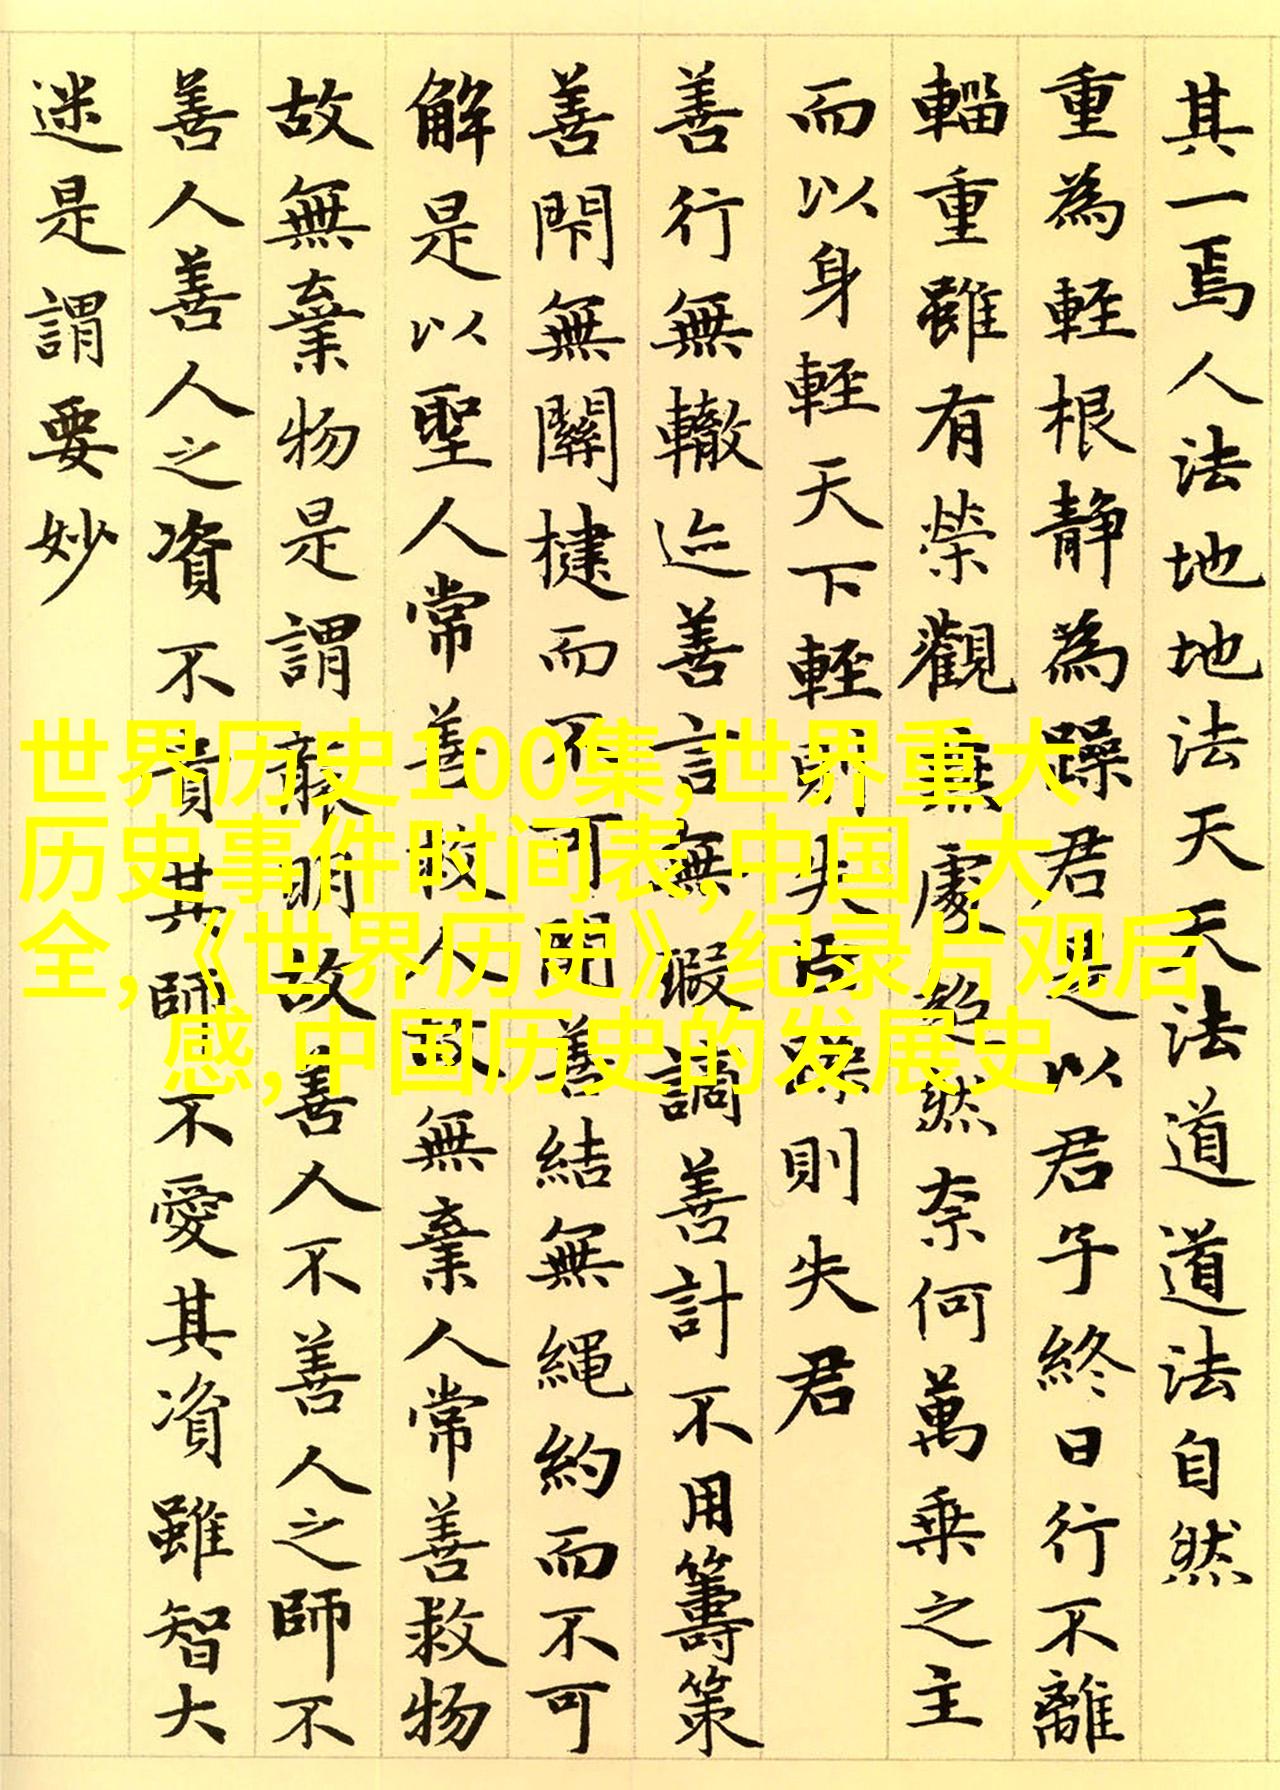 其一焉人法地地法天天法道道法自然
重為輕根靜為躁君是以君子終日行不離
輜重雖有榮觀燕處超然奈何萬乘之主
而以身輕天下輕則失臣躁則失君
善行無轍迹善言無瑕謫善計不用籌策
善閇無關楗而不可開善結無繩約而不可
解是以聖人常善救人故無棄人常善救物
故無棄物是謂襲明故善人不善人之師不
善人善人之資不貴其師不愛其資雖智大
迷是謂要妙
世界历史100集,世界重大
历史事件时间表,中国 大
全,《世界历史》纪录片观后
感,中国历史的发展史